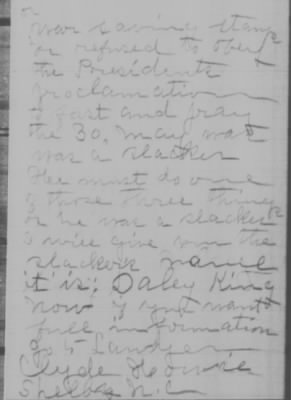 a
war saving stamp
or refused to obey
the Presidents
proclamation
to fast and pray
the 30, may wat
was a slacker
Hee must do one
of those three things
or he was a slacker
I will give you the
slackers name
it is; Daley King
now if you want
full information
go to Lawyer
Clyde Hoowie
Shelby N.C